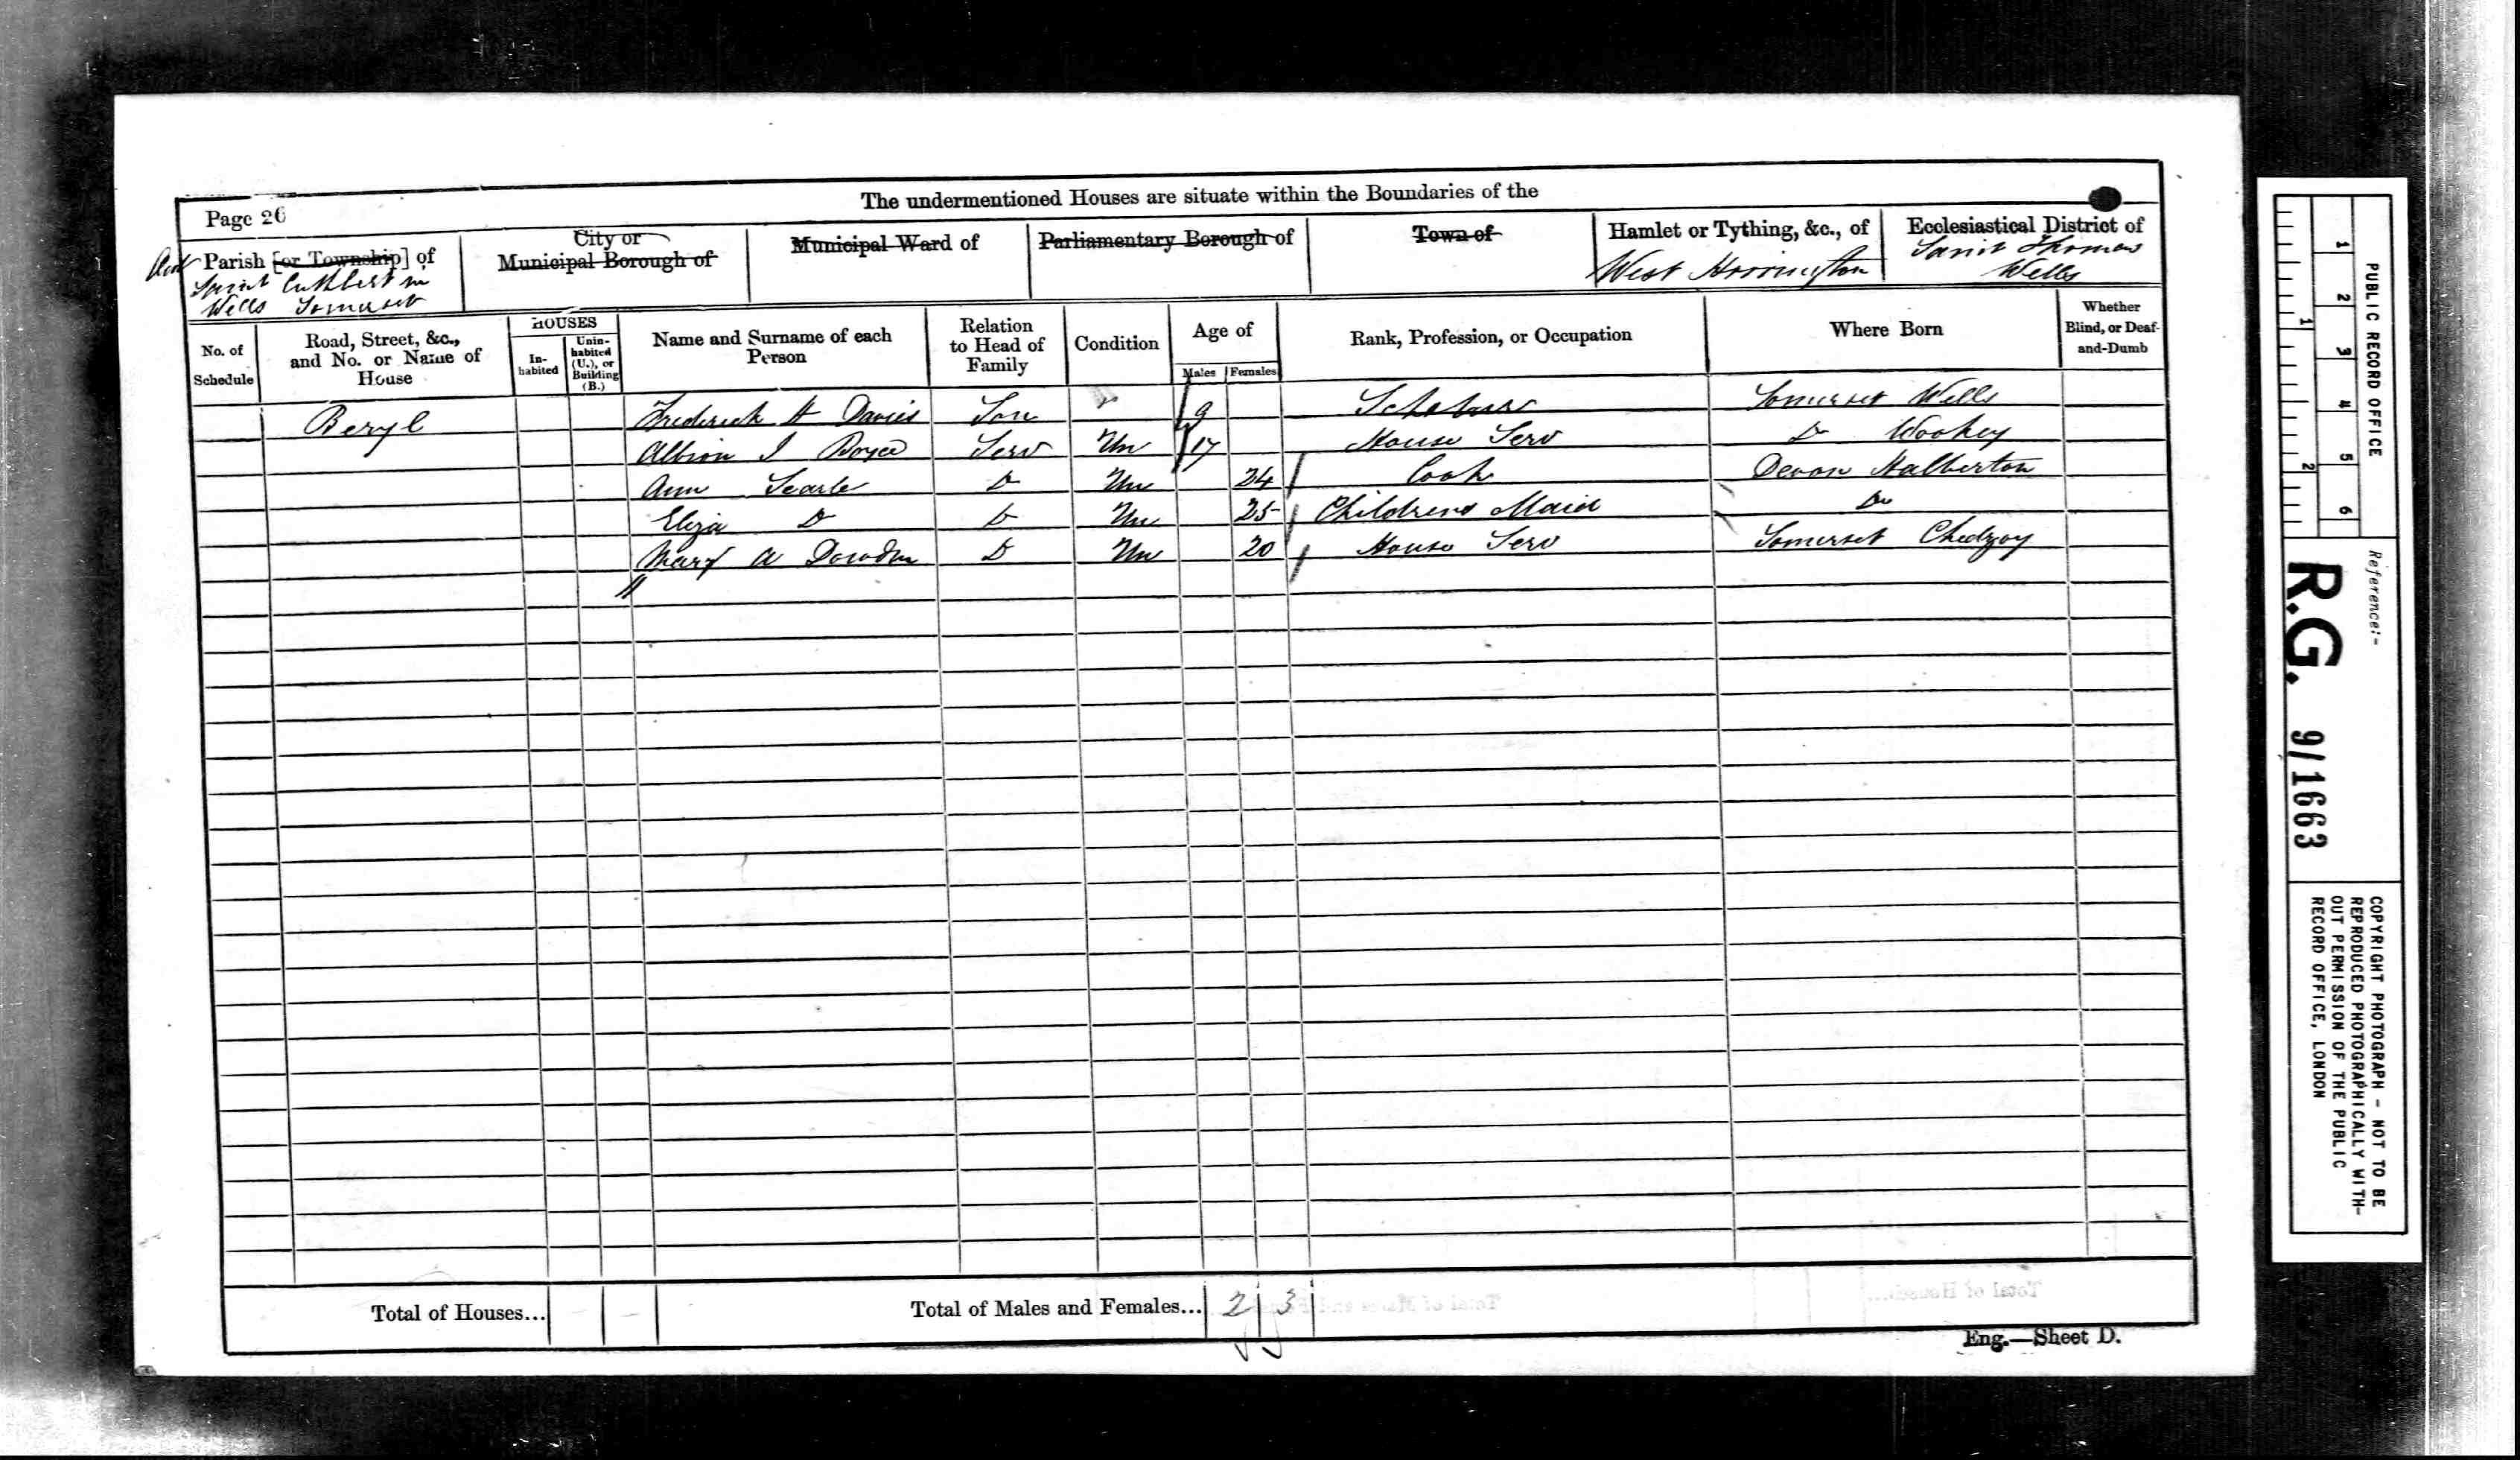 The undermentioned Houses are situate within the Boundaries of the
Page 26
Parish [or Township] of
Saint Cuthbert in
Wells Somerset
City or
Municipal Borough of
Municipal Ward of
Parliamentary Borough of
Town of
Hamlet or Tything, &c., of
West Horrington
Ecclesiastical District of
Saint Thomas
Wells
No. of
Schedule
Road, Street, &c.,
and No. or Name of
House
HOUSES
In-
habited
Unin-
habited
(U.), or
Building
(B.)
Name and Surname of each
Person
Relation
to Head of
Family
Condition
Age of
Males
Females
Rank, Profession, or Occupation
Where Born
Whether
Blind, or Deaf-
and-Dumb
Beryl Frederick H Davies Son 9 Scholar Somerset Wells
Albion J Boyce Serv Un 17 House Serv Do Wookey
Ann Searle Do Un 24 Cook Devon Halberton
Eliza Do Do Un 25 Childrens Maid Do
Mary A Dowden Do Un 20 House Serv Somerset Chedzoy
Total of Houses...
Total of Males and Females... 2 3
Eng.—Sheet D.
PUBLIC RECORD OFFICE
1 2 3 4 5 6
1 2
Reference:-
R.G. 9/1663
COPYRIGHT PHOTOGRAPH - NOT TO BE
REPRODUCED PHOTOGRAPHICALLY WITH-
OUT PERMISSION OF THE PUBLIC
RECORD OFFICE, LONDON